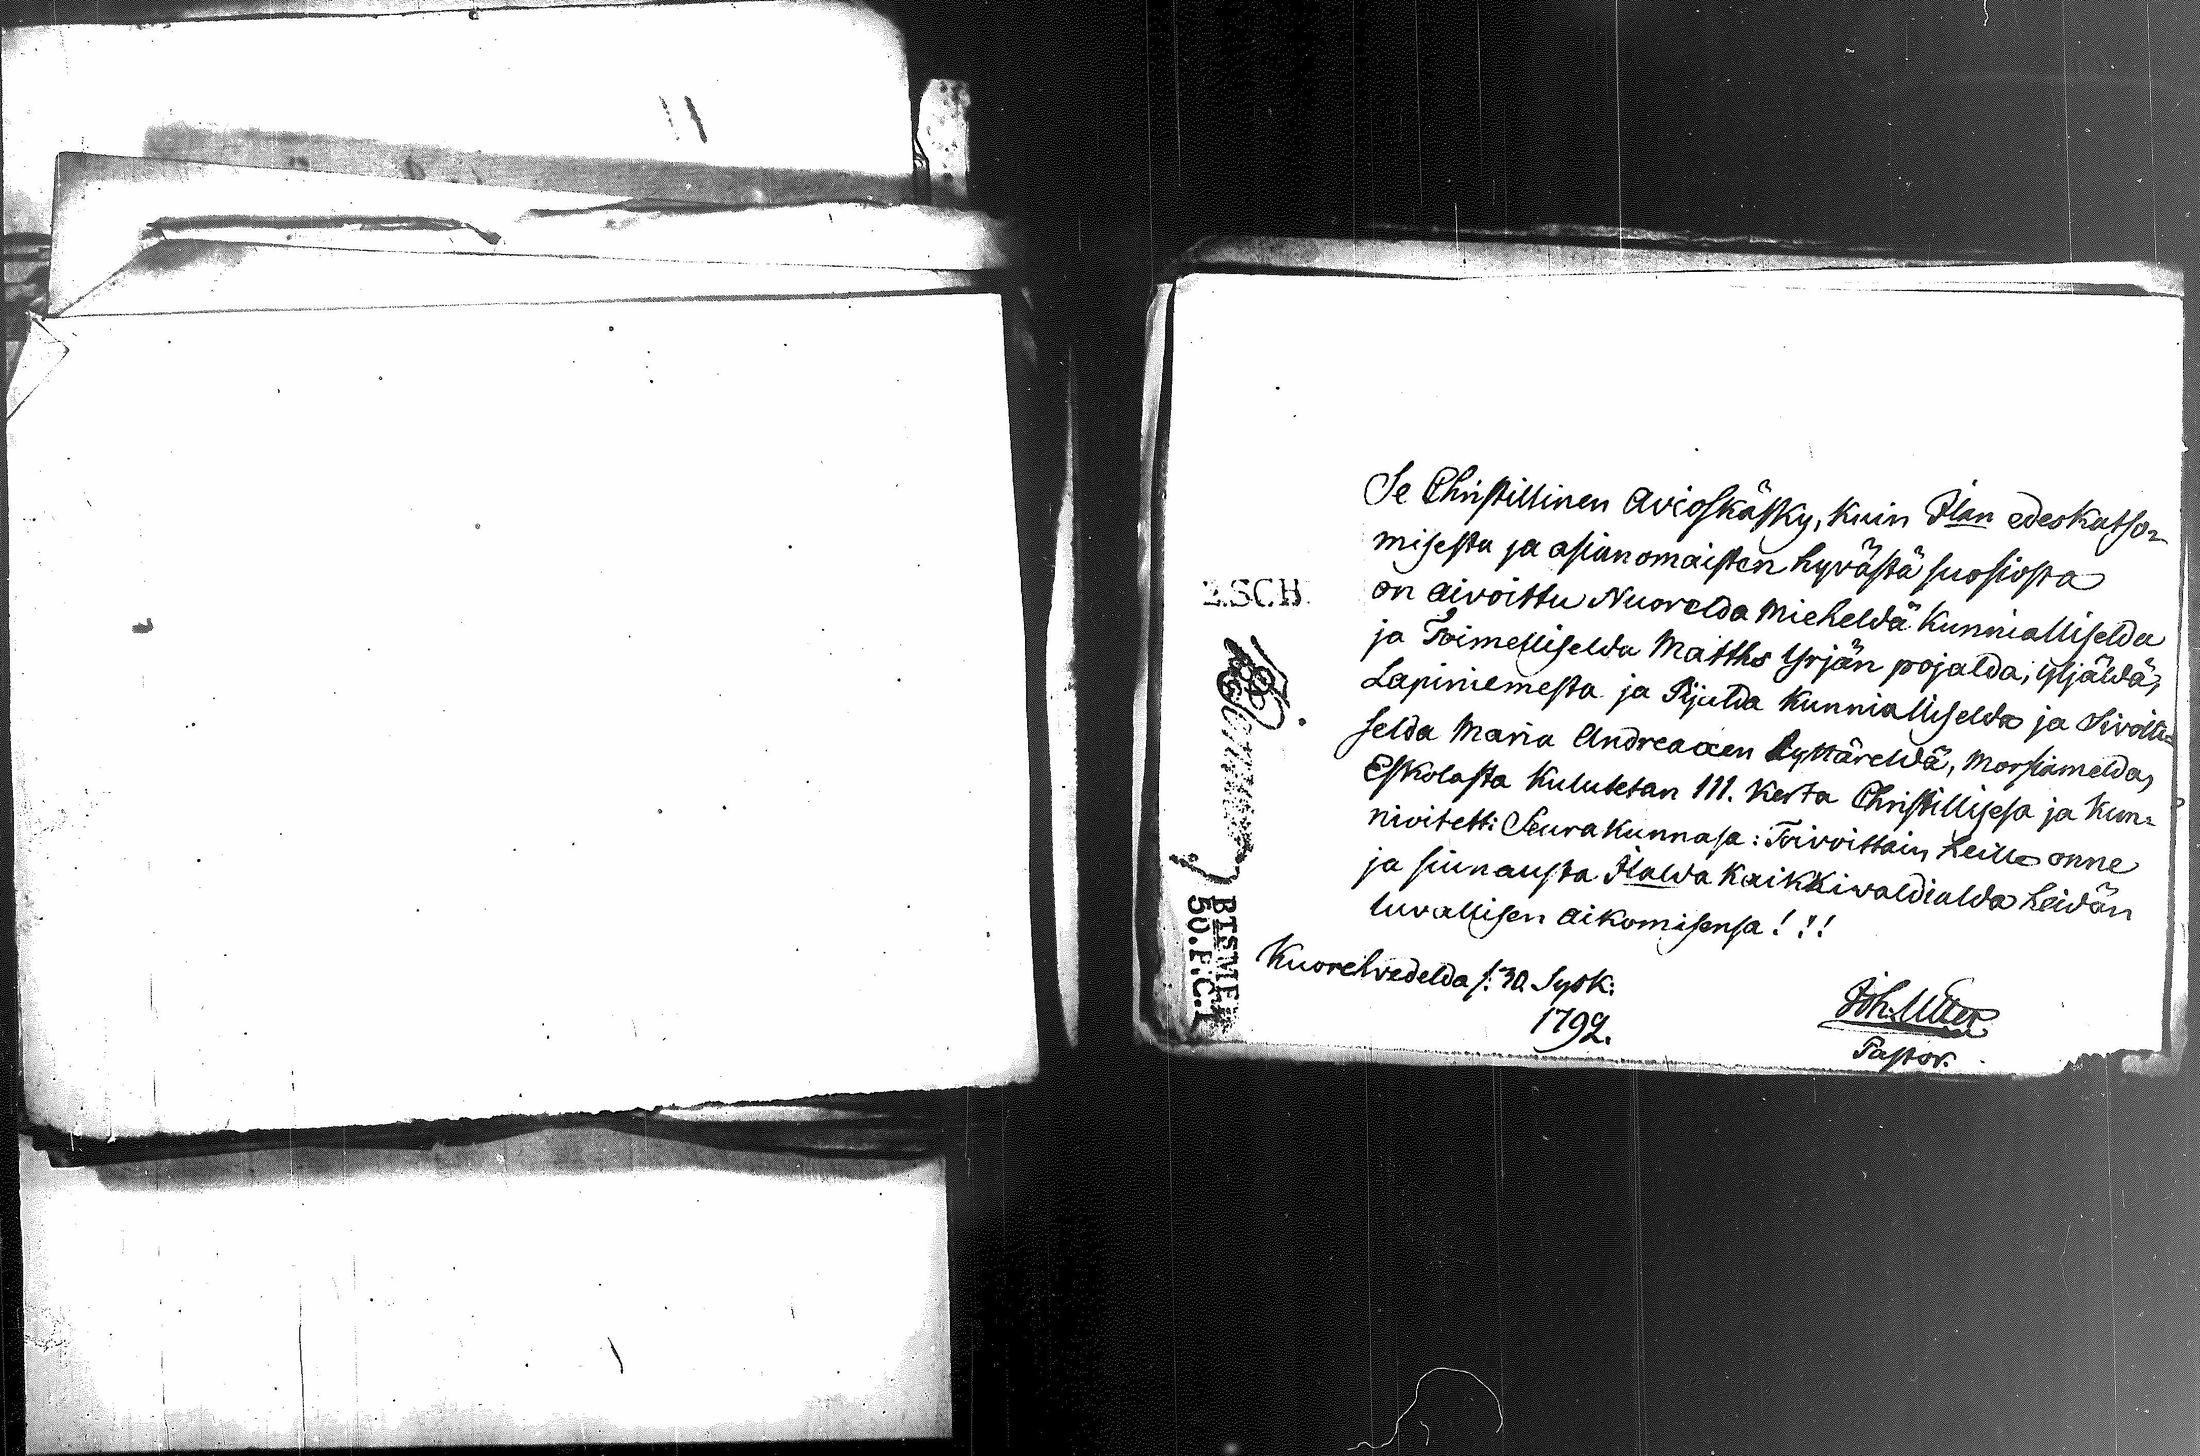 Se Christillinen Avioskäsky, kuin Ilan edeskatso=
misesta ja asianomaisten hyvästä suosiosta
on aivoittu Nuorelda Mieheldä Kunnialliselda
ja Toimelliselda Matths Yrjän pojalda, yljäldä,
Lapiniemesta ja Pijalda Kunnialliselda ja Sivölli=
selda Maria Andreaxen Tyttäreldä, Morsiamelda,
Eskolasta Kulutetan 111. Kerta Christillisesä ja Kun=
nivitetti Seurakunnasa: Toivoittain heille onne
ja siunausta Ilalda Kaikkivaldialda heidän
luvallisen aikomisensa!!!
Kuorehvedelda /: 30. Sysk:
1792.
Joh.
Pastor.
Z.SCH.
BTSME
50.F.C.